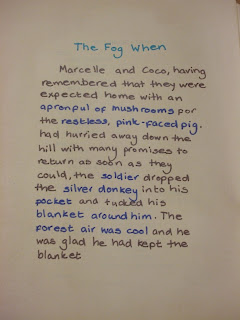 The Fog When
Marcelle and Coco, having
remembered that they were
expected home with an
apronful of mushrooms for
the restless, pink-faced pig.
had hurried away down the
hill with many promises to
return as soon as they
could, the soldier dropped
the silver donkey into his
pocket and tucked his
blanket around him. The
forest air was cool and he
was glad he had kept the
blanket